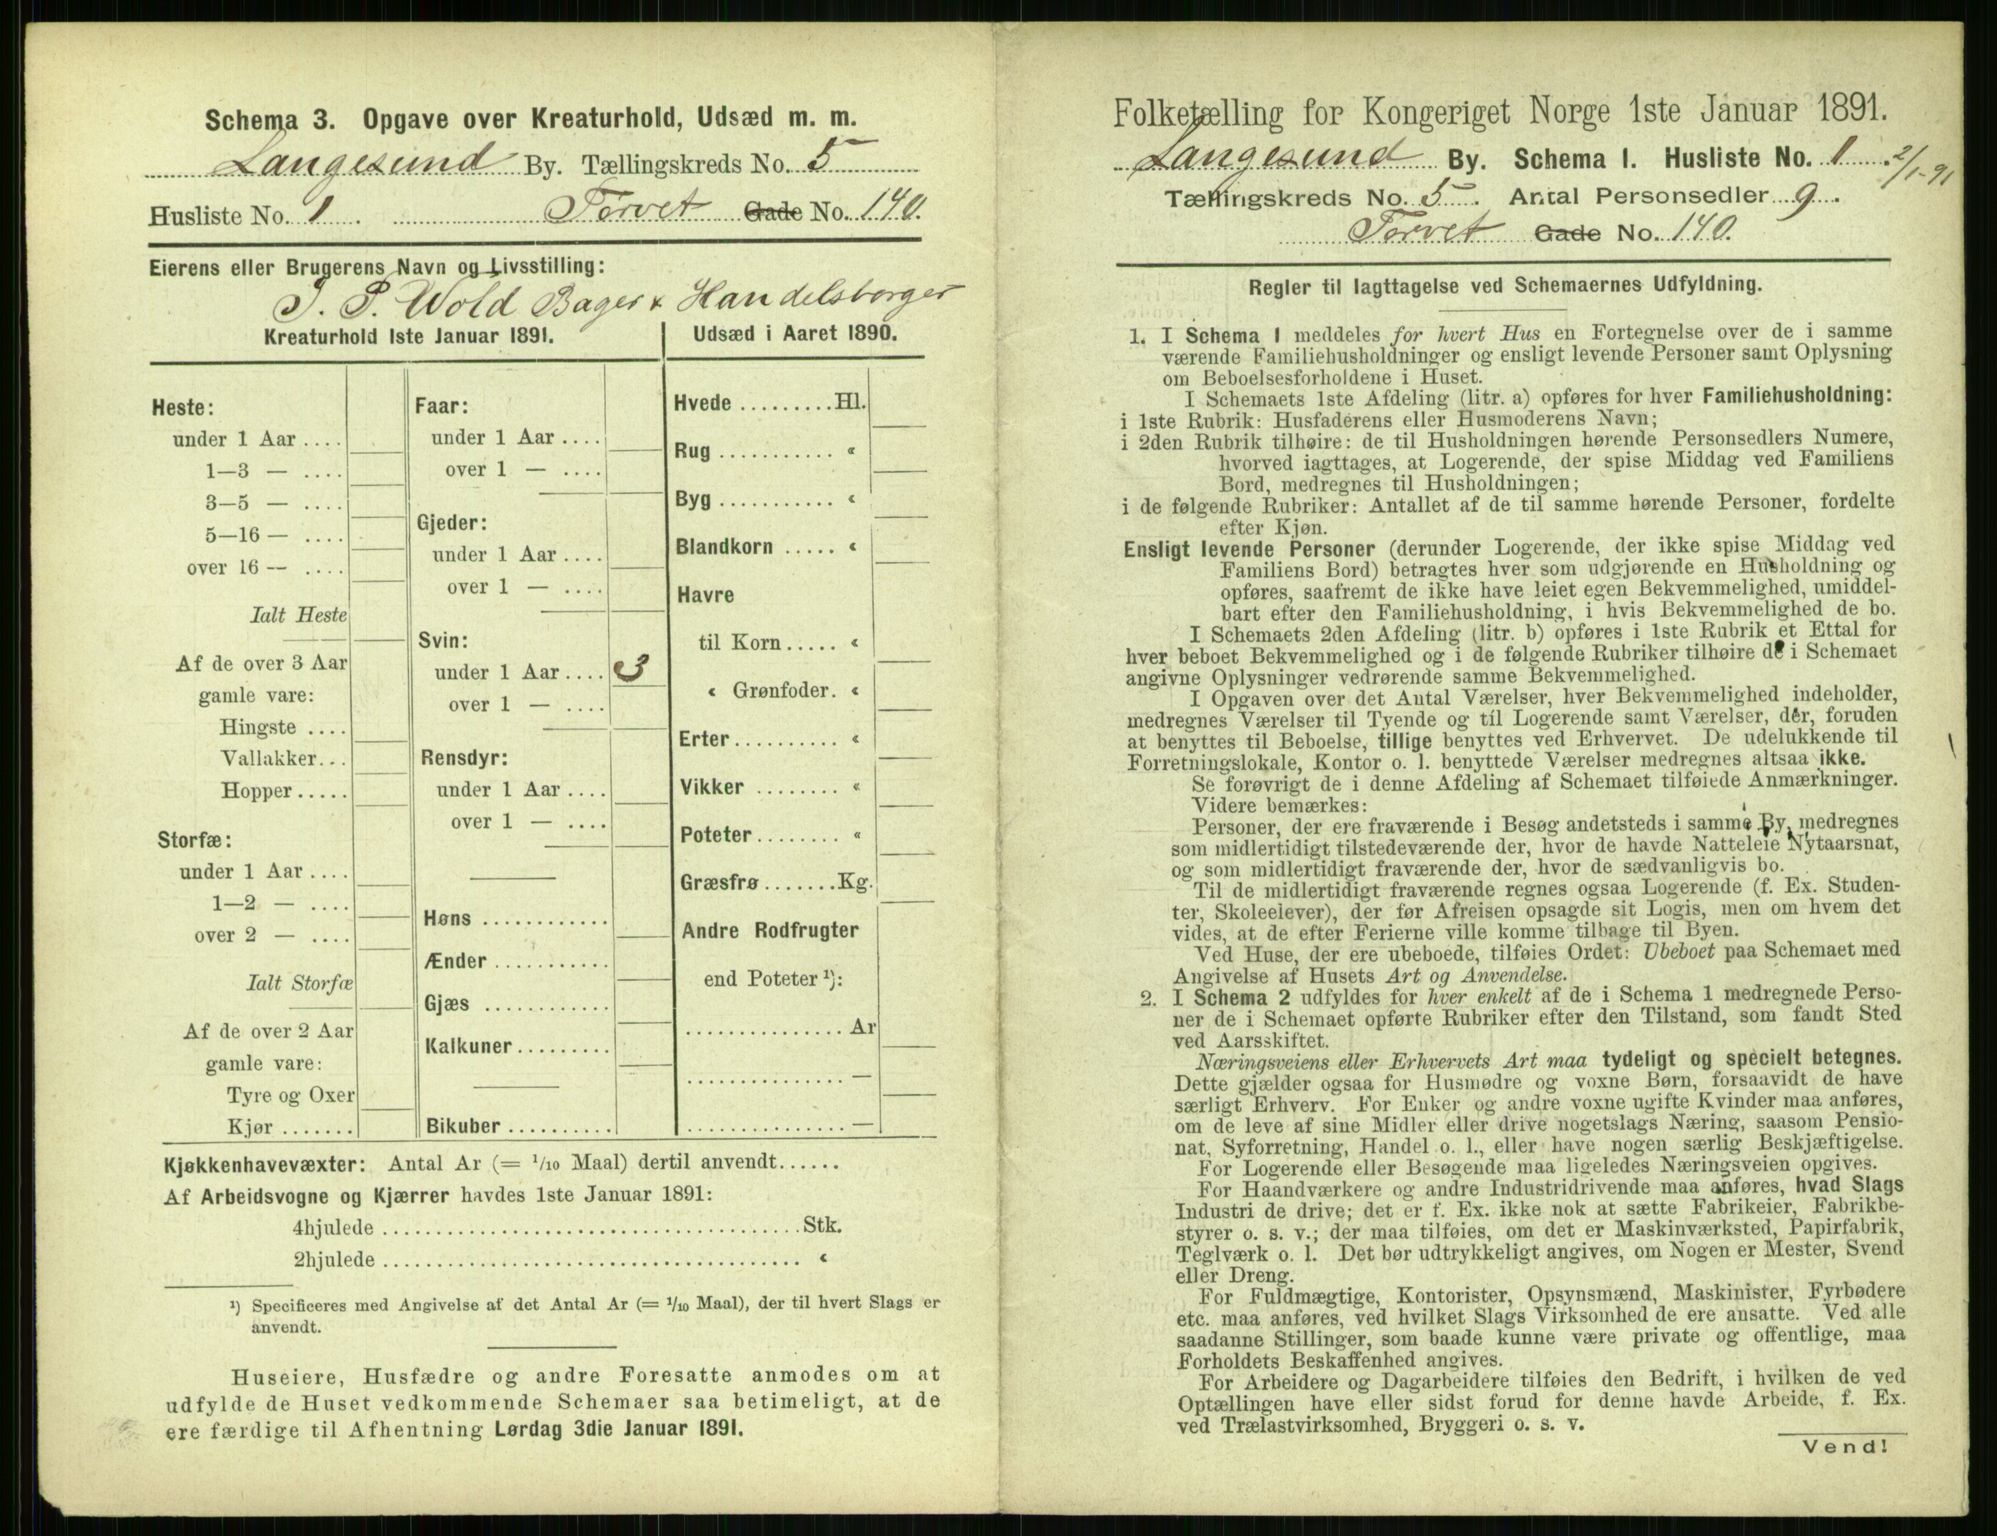 Schema 3. Opgave over Kreaturhold, Udsæd m. m.
Langesund By. Tællingskreds No. 5
Husliste No. 1. Torvet Gade No. 140.
Eierens eller Brugerens Navn og Livsstilling:
J. P. Wold Bager & Handelsborger
Kreaturhold 1ste Januar 1891.
Heste:
under 1 Aar ....
1—3 — ....
3—5 — ....
5—16 — ....
over 16 — ....
Ialt Heste
Af de over 3 Aar
gamle vare:
Hingste ....
Vallakker...
Hopper.....
Storfæ:
under 1 Aar ....
1—2 — ....
over 2 — ....
Ialt Storfæ
Af de over 2 Aar
gamle vare:
Tyre og Oxer
Kjør .......
Faar:
under 1 Aar ....
over 1 — ....
Gjeder:
under 1 Aar ....
over 1 — ....
Svin:
under 1 Aar .... 3
over 1 — ....
Rensdyr:
under 1 Aar ....
over 1 — ....
Høns ............
Ænder ...........
Gjæs ............
Kalkuner.........
Bikuber ..........
Udsæd i Aaret 1890.
Hvede .........Hl.
Rug ........... «
Byg ........... «
Blandkorn ..... «
Havre
til Korn ..... «
« Grønfoder. «
Erter.......... «
Vikker ........ «
Poteter........ «
Græsfrø.......Kg.
Andre Rodfrugter
end Poteter ¹):
............... Ar
............... —
............... —
Kjøkkenhavevæxter: Antal Ar (= 1/10 Maal) dertil anvendt......
Af Arbeidsvogne og Kjærrer havdes 1ste Januar 1891:
4hjulede ........................................Stk.
2hjulede ........................................ «
¹) Specificeres med Angivelse af det Antal Ar (= 1/10 Maal), der til hvert Slags er
anvendt.
Huseiere, Husfædre og andre Foresatte anmodes om at
udfylde de Huset vedkommende Schemaer saa betimeligt, at de
ere færdige til Afhentning Lørdag 3die Januar 1891.
Folketælling for Kongeriget Norge 1ste Januar 1891.
Langesund By. Schema 1. Husliste No. 1. 2/1-91
Tællingskreds No. 5. Antal Personsedler 9.
Torvet Gade No. 140.
Regler til Iagttagelse ved Schemaernes Udfyldning.
1. I Schema 1 meddeles for hvert Hus en Fortegnelse over de i samme
værende Familiehusholdninger og ensligt levende Personer samt Oplysning
om Beboelsesforholdene i Huset.
I Schemaets 1ste Afdeling (litr. a) opføres for hver Familiehusholdning:
i 1ste Rubrik: Husfaderens eller Husmoderens Navn;
i 2den Rubrik tilhøire: de til Husholdningen hørende Personsedlers Numere,
hvorved iagttages, at Logerende, der spise Middag ved Familiens
Bord, medregnes til Husholdningen;
i de følgende Rubriker: Antallet af de til samme hørende Personer, fordelte
efter Kjøn.
Ensligt levende Personer (derunder Logerende, der ikke spise Middag ved
Familiens Bord) betragtes hver som udgjørende en Husholdning og
opføres, saafremt de ikke have leiet egen Bekvemmelighed, umiddel-
bart efter den Familiehusholdning, i hvis Bekvemmelighed de bo.
I Schemaets 2den Afdeling (litr. b) opføres i 1ste Rubrik et Ettal for
hver beboet Bekvemmelighed og i de følgende Rubriker tilhøire de i Schemaet
angivne Oplysninger vedrørende samme Bekvemmelighed.
I Opgaven over det Antal Værelser, hver Bekvemmelighed indeholder,
medregnes Værelser til Tyende og til Logerende samt Værelser, der, foruden
at benyttes til Beboelse, tillige benyttes ved Erhvervet. De udelukkende til
Forretningslokale, Kontor o. l. benyttede Værelser medregnes altsaa ikke.
Se forøvrigt de i denne Afdeling af Schemaet tilføiede Anmærkninger.
Videre bemærkes:
Personer, der ere fraværende i Besøg andetsteds i samme By, medregnes
som midlertidigt tilstedeværende der, hvor de havde Natteleie Nytaarsnat,
og som midlertidigt fraværende der, hvor de sædvanligvis bo.
Til de midlertidigt fraværende regnes ogsaa Logerende (f. Ex. Studen-
ter, Skoleelever), der før Afreisen opsagde sit Logis, men om hvem det
vides, at de efter Ferierne ville komme tilbage til Byen.
Ved Huse, der ere ubeboede, tilføies Ordet: Ubeboet paa Schemaet med
Angivelse af Husets Art og Anvendelse.
2. I Schema 2 udfyldes for hver enkelt af de i Schema 1 medregnede Perso-
ner de i Schemaet opførte Rubriker efter den Tilstand, som fandt Sted
ved Aarsskiftet.
Næringsveiens eller Erhvervets Art maa tydeligt og specielt betegnes.
Dette gjælder ogsaa for Husmødre og voxne Børn, forsaavidt de have
særligt Erhverv. For Enker og andre voxne ugifte Kvinder maa anføres,
om de leve af sine Midler eller drive nogetslags Næring, saasom Pensio-
nat, Syforretning, Handel o. l., eller have nogen særlig Beskjæftigelse.
For Logerende eller Besøgende maa ligeledes Næringsveien opgives.
For Haandværkere og andre Industridrivende maa anføres, hvad Slags
Industri de drive; det er f. Ex. ikke nok at sætte Fabrikeier, Fabrikbe-
styrer o. s. v.; der maa tilføies, om det er Maskinværksted, Papirfabrik,
Teglværk o. l. Det bør udtrykkeligt angives, om Nogen er Mester, Svend
eller Dreng.
For Fuldmægtige, Kontorister, Opsynsmænd, Maskinister, Fyrbødere
etc. maa anføres, ved hvilket Slags Virksomhed de ere ansatte. Ved alle
saadanne Stillinger, som baade kunne være private og offentlige, maa
Forholdets Beskaffenhed angives.
For Arbeidere og Dagarbeidere tilføies den Bedrift, i hvilken de ved
Optællingen have eller sidst forud for denne havde Arbeide, f. Ex.
ved Trælastvirksomhed, Bryggeri o. s. v.
Vend!